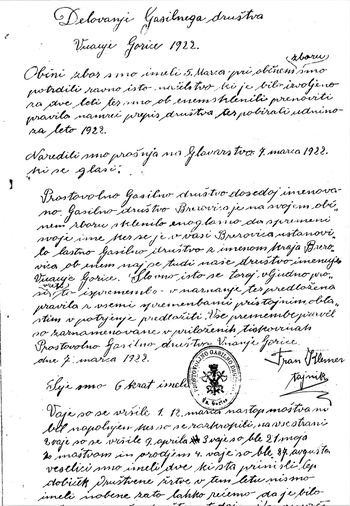 Delovanji Gasilnega društva
Vnanje Gorice 1922.
Občni zbor smo imeli 5. Marca pri občnem smo
zboru
potrdili ravno isto načelstvo ki je bilo izvoljeno
za dve leti ter smo ob enem sklenili prenoviti
pravila namreč prepis društva ter pobirati udnino
za leto 1922.
Naredili smo prošnja na Glavarstvo 7. marca 1922.
ki se glasi.
Prostovolno Gasilno društvo dosedaj imenova-
no Gasilno društvo Brezovica je na svojem obč-
nem zboru sklenilo enoglasno da spremeni
svoje ime ker se je v vasi Brezovica ustanovi-
lo lastno Gasilno društvo z imenom kraja Brezo-
vica ob enem naj se tudi naše društvo imenuje
Vnanje Gorice. Slavno isto se torej vljudno pro-
si to izpremembo v naznanje ter predložena
pravila z vsemi spremembami pristojnim obla-
stim v potrjenje predložiti. Vse premembe pravil
so zaznamenovane v priloženih tiskovinah
Prostovolno Gasilno društvo Vnanje Gorice
dne 7. marca 1922.
Fran Klemer
tajnik
Seje smo 6 krat imeli
Vaje so se vršile 1. 12. marca nastop moštva ni
bil napolnjen ker so se razkropili na vse strani
2 vaje so se vršile 7. aprila 3 vaje so ble 21. maja
z moštvam in orodjem 4. vaje so ble 27. avgusta
veselici smo imeli dve ki sta prinisli lep
dobiček Društvene žrtve v tem letu nismo
imeli nobene zato lahko rečemo da je bilo